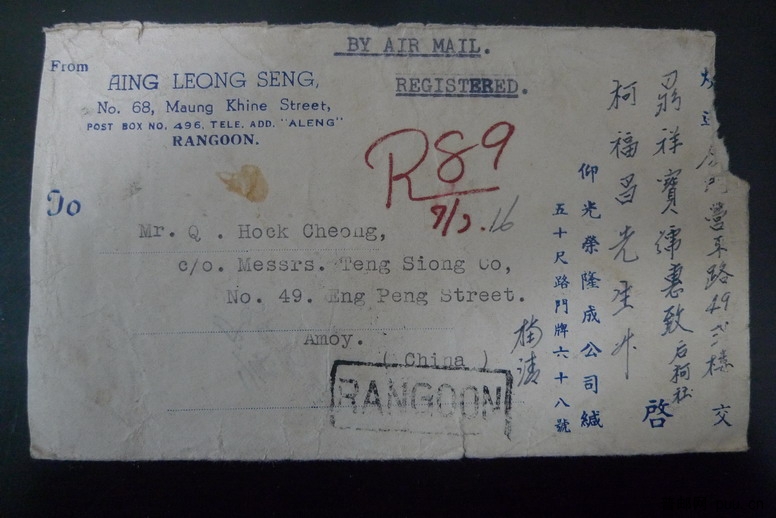 BY AIR MAIL.
REGISTERED.
From
AING LEONG SENG,
No. 68, Maung Khine Street,
POST BOX NO. 496, TELE. ADD. "ALENG"
RANGOON.
R89
7/3.16
To
Mr. Q . Hock Cheong,
c/o. Messrs. Teng Siong Co,
No. 49. Eng Peng Street.
Amoy.
( China )
RANGOON
營平路49號樓 交
祥寶號惠致
柯福昌先生
啓
仰光榮隆成公司緘
五十尺路門牌六十八號